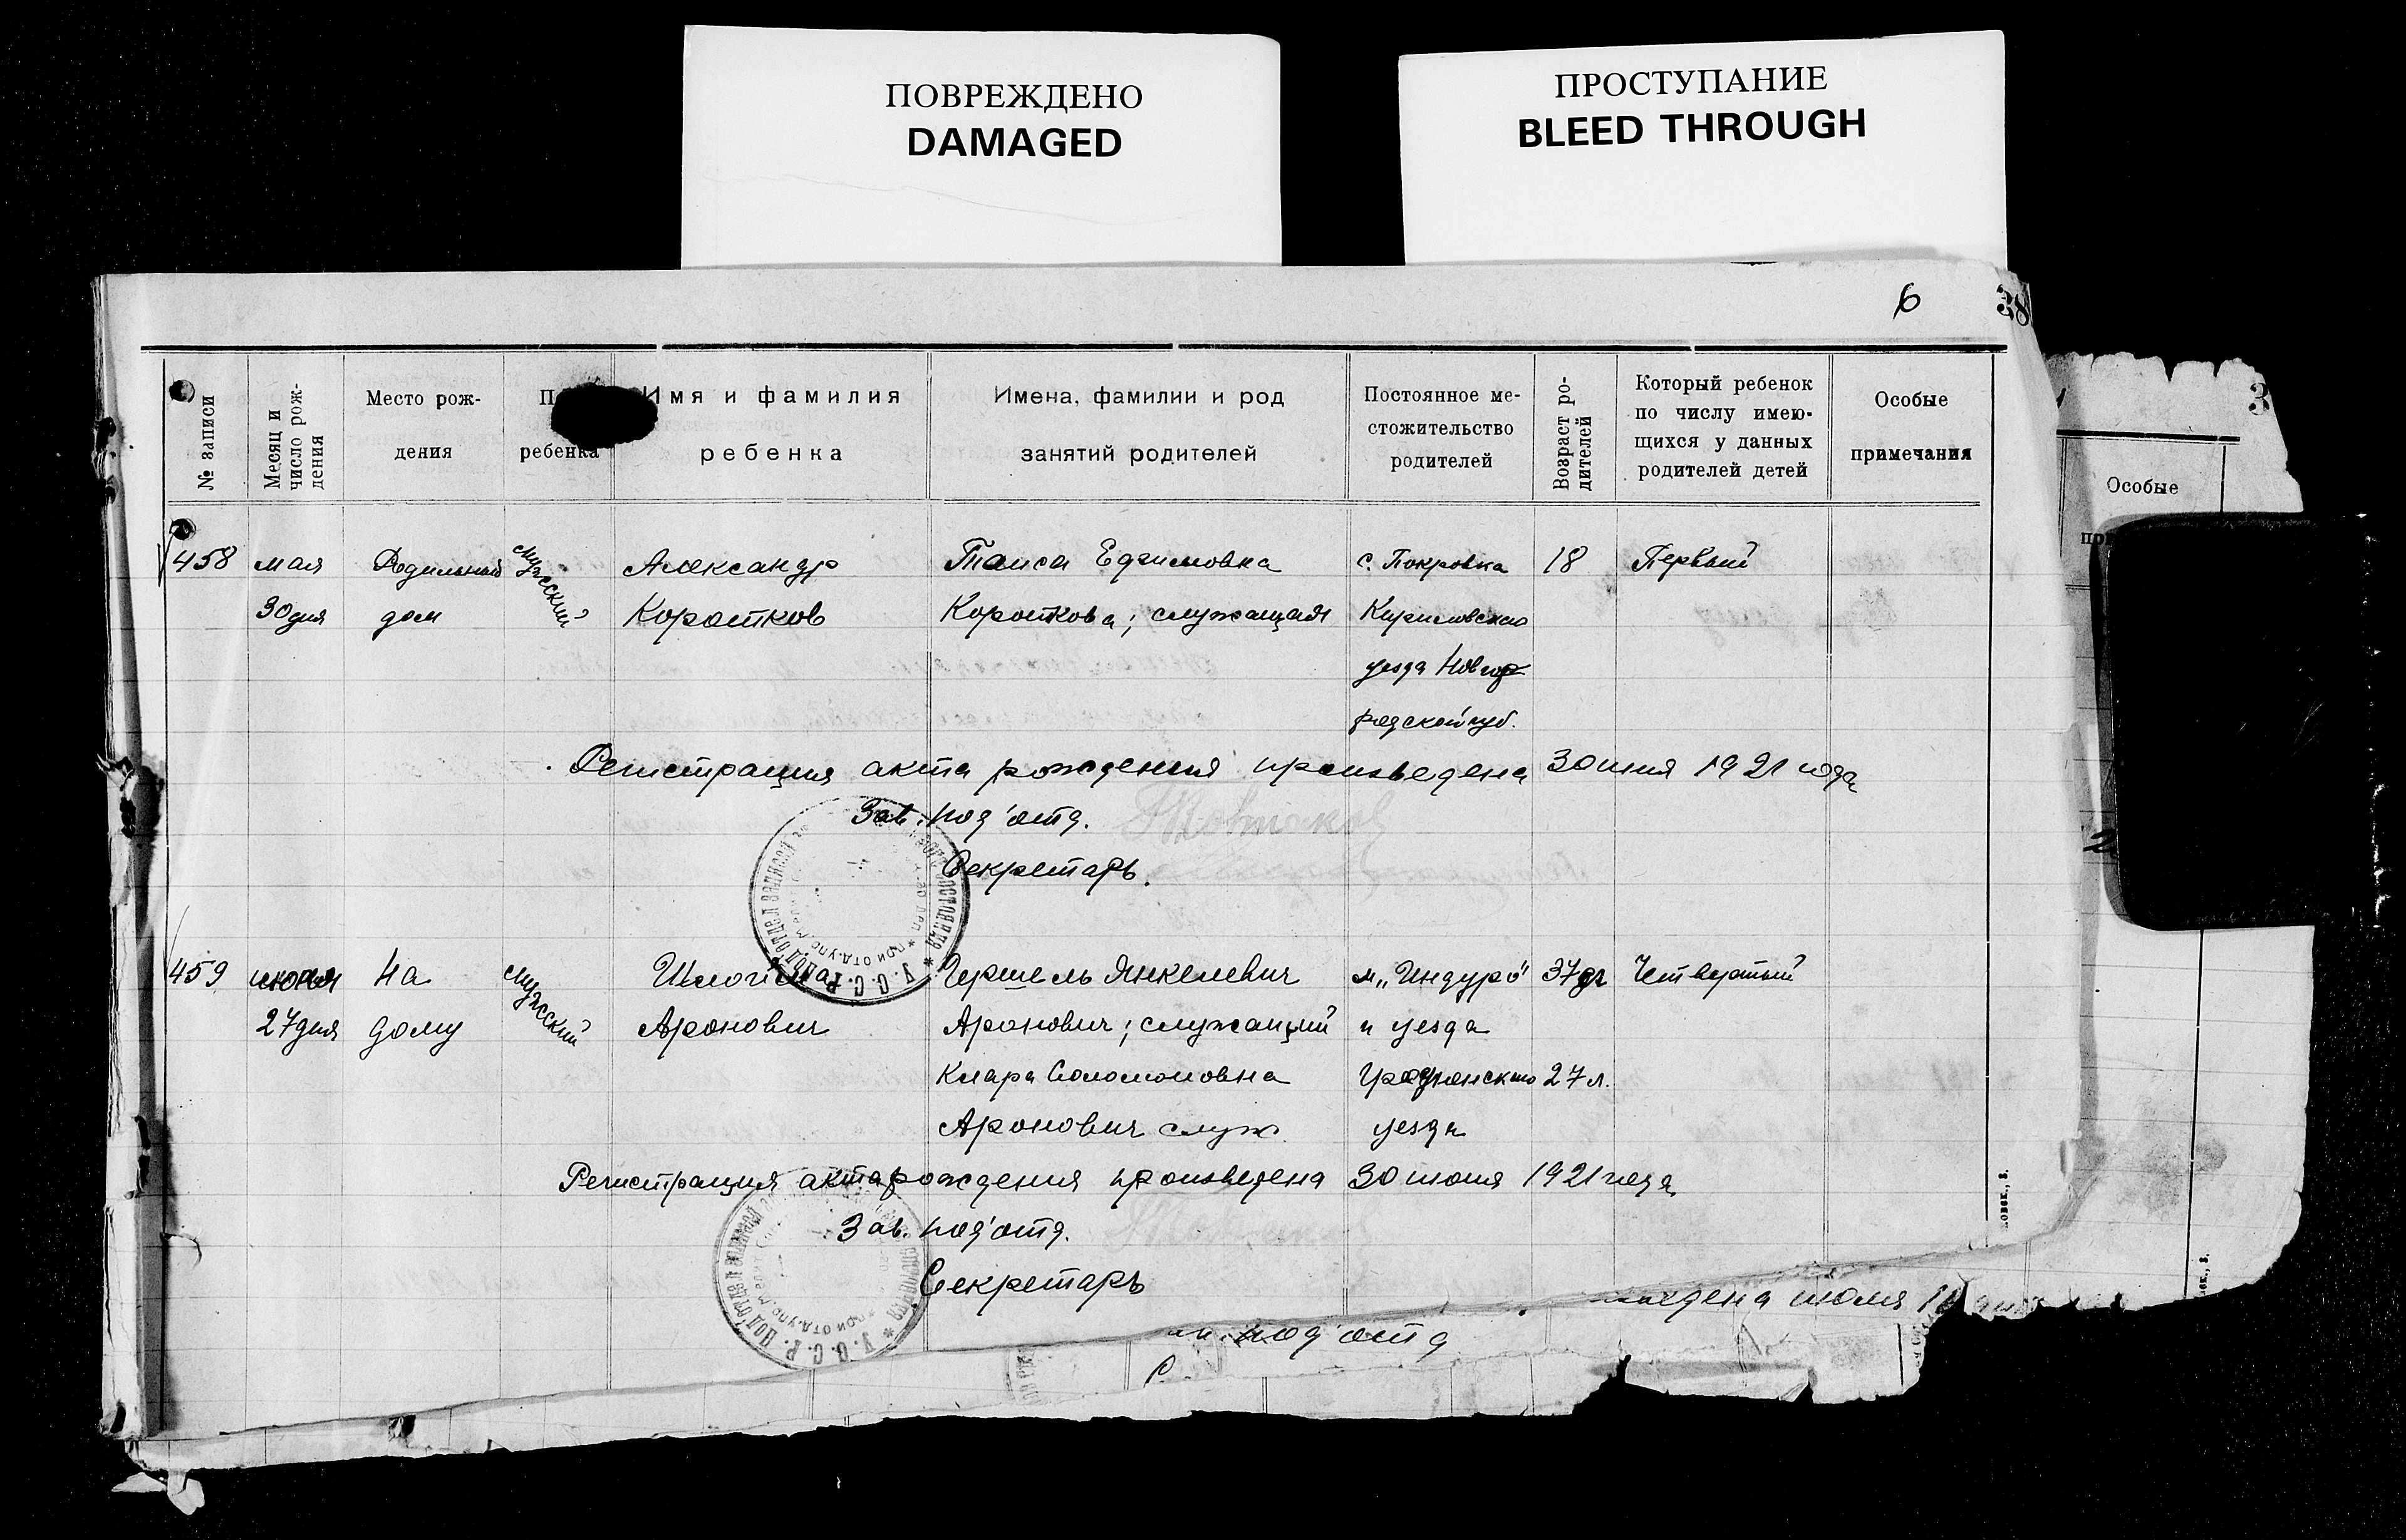 ПОВРЕЖДЕНО
DAMAGED
ПРОСТУПАНИЕ
BLEED THROUGH
6
38
3
№ записи
Месяц и число рож-
дения
Место рож-
дения
ребенка
Имя и фамилия
ребенка
Имена, фамилии и род
занятий родителей
Постоянное ме-
стожительство
родителей
Возраст ро-
дителей
Который ребенок
по числу имею-
щихся у данных
родителей детей
Особые
примечания
Особые
458 мая Родильный мужский Александр Таиса Ефимовна с. Покровка 18 Первый
30 дня дом Коротков Короткова; служащая
уезда Новго
родской губ.
Регистрация акта рождения произведена 30 июня 1921 года
Зав. под'отд.
Секретарь.
459 июня На мужский Гершель Янкелевич м. „Индуро" 37 Четвертый
27 дня дому Аронович Аронович; служащий и уезда
Клара Соломоновна Гродненского 27 л.
Аронович служ. уезда
Регистрация акта рождения произведена 30 июня 1921 года
Зав. под'отд.
Секретарь
У. С. С. Р.
июля
под'отд